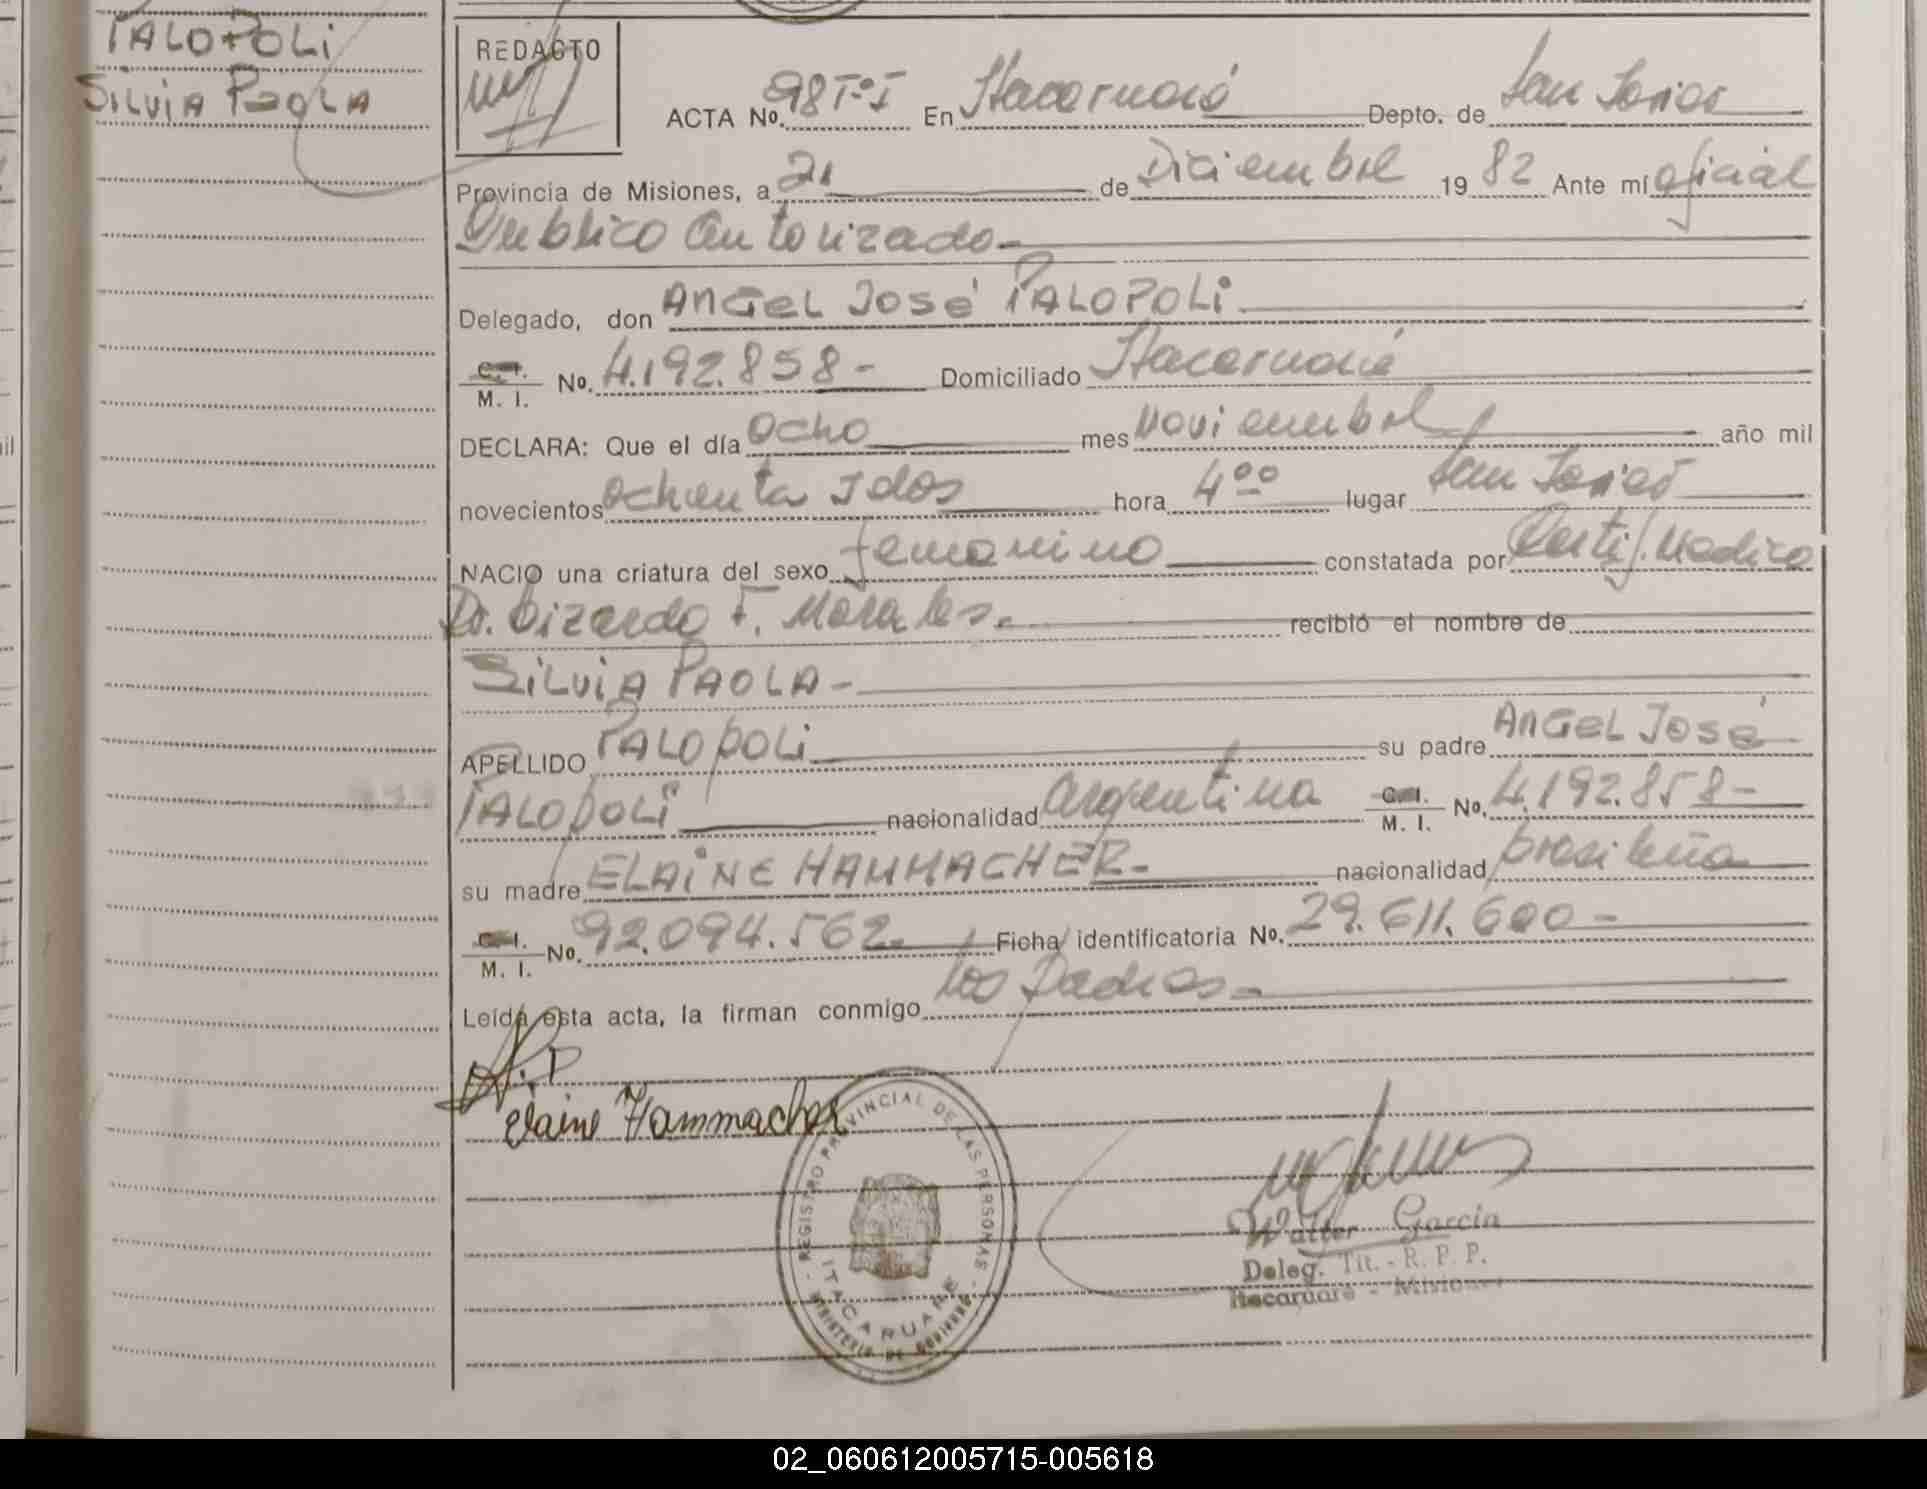 PALOPOLI
SILVIA PAOLA
REDACTO
ACTA No. 98 Tº I En Itacaruaré Depto. de San Javier
Provincia de Misiones, a 21 de Diciembre 19 82 Ante mí oficial
Publico Autorizado
Delegado, don ANGEL JOSÉ PALOPOLI
C. I. M. I. No. 4.192.858- Domiciliado Itacaruaré
DECLARA: Que el día ocho mes noviembre año mil
novecientos ochenta y dos hora 4ºº lugar San Javier
NACIO una criatura del sexo femenino constatada por Certif. Medico
Dr. Lizardo F. Morales.- recibió el nombre de
SILVIA PAOLA-
APELLIDO PALOPOLI su padre ANGEL JOSÉ
PALOPOLI nacionalidad argentina C. I. M. I. No. 4.192.858-
su madre ELAINE HAMMACHER- nacionalidad brasileña
C. I. M. I. No. 92.094.562- Ficha identificatoria No. 29.611.600-
Leída esta acta, la firman conmigo los Padres-
A.P
Elaine Hammacher
REGISTRO PROVINCIAL DE LAS PERSONAS
ITACARUARE
MINISTERIO DE GOBIERNO
Walter García
Deleg. Tit. - R. P. P.
Itacaruaré - Misiones
02_060612005715-005618